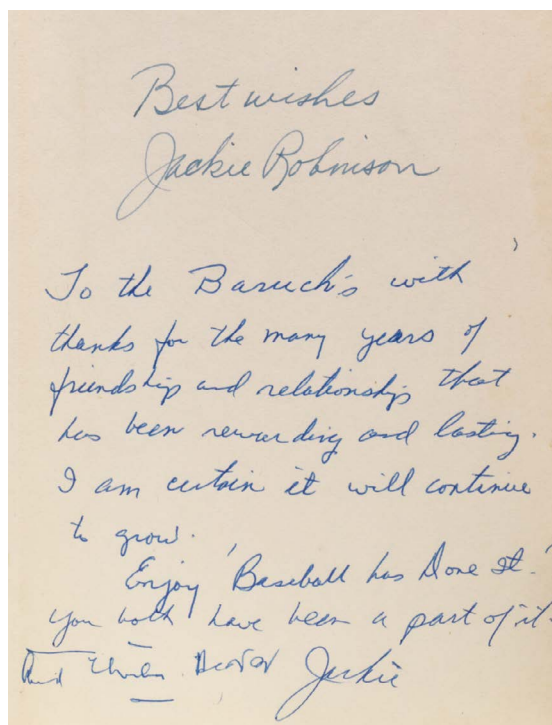 Best wishes
Jackie Robinson
To the Baruch's with
thanks for the many years of
friendship and relationship that
has been rewarding and lasting.
I am certain it will continue
to grow.
Enjoy 'Baseball has Done It.'
You both have been a part of it.
And
Jackie